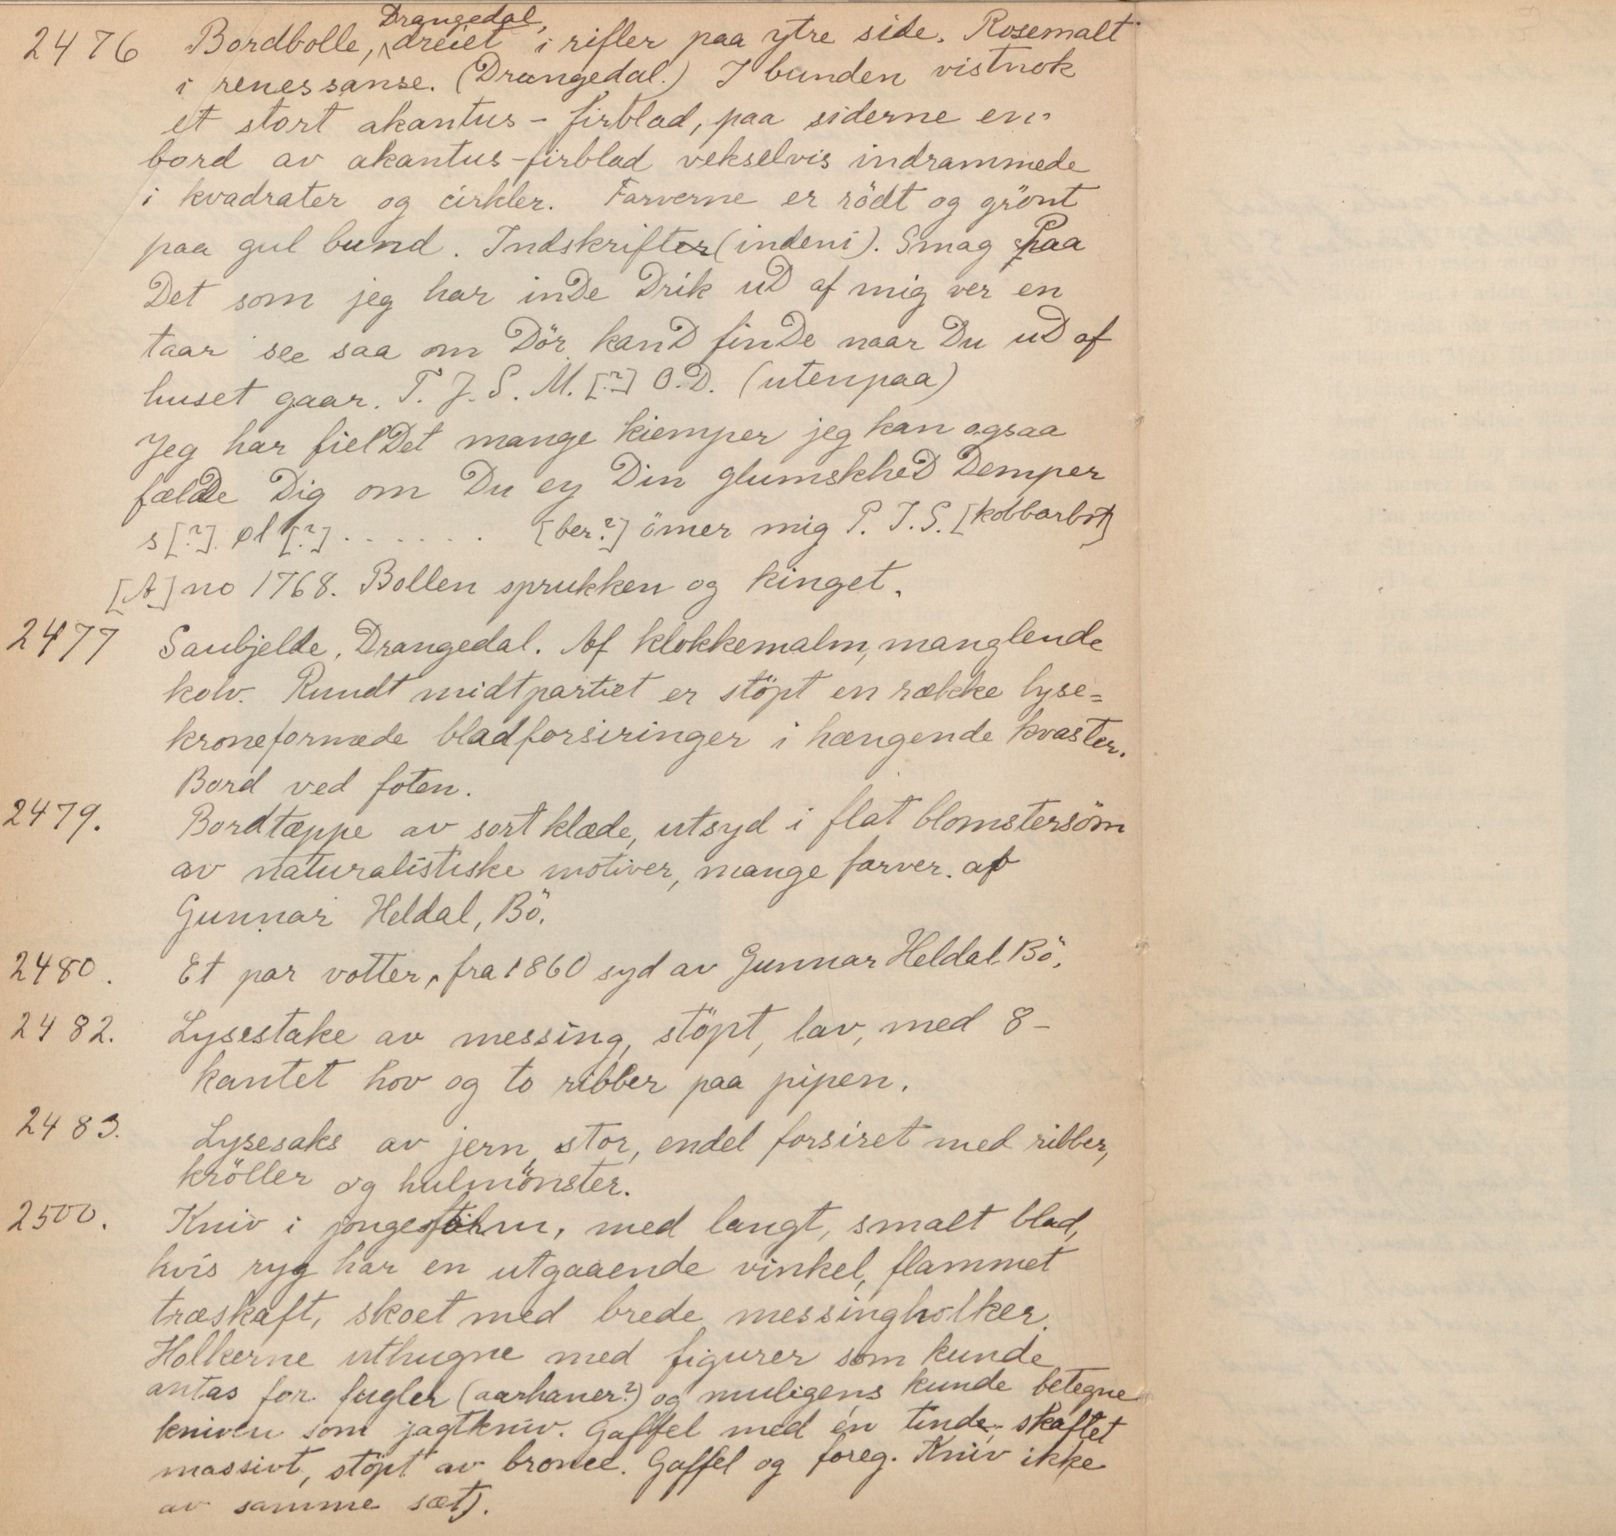 2476 Bordbolle, Drangedal, dreiet i rifler paa ytre side. Rosemalt
i renessanse. (Drangedal.) I bunden vistnok
et stort akantus-firblad, paa siderne en
bord av akantus-firblad vekselvis indrammede
i kvadrater og cirkler. Farverne er rödt og grönt
paa gul bund. Indskrifter (indeni). Smag Paa
Det som jeg har inDe Drik uD af mig ver en
taar see saa om Dör kanD finDe naar Du uD af
huset gaar. T. J. S. M. [?] O.D. (utenpaa)
Jeg har fielDet mange kiemper jeg kan ogsaa
fælDe Dig om Du ey Din glumskheD Demper
s[?]. øl [?] . . . . . . [ber?] ömer mig P. J. S. [kobbarbot]
[A] no 1768. Bollen sprukken og kinget.
2477 Saubjelde, Drangedal. Af klokkemalm, manglende
kolv. Rundt midtpartiet er stöpt en række lyse=
kroneformede bladforsiringer i hængende kvaster.
Bord ved foten.
2479. Bordtæppe av sort klæde, utsyd i flat blomstersöm
av naturalistiske motiver, mange farver. af
Gunnar Heldal, Bö.
2480. Et par votter, fra 1860 syd av Gunnar Heldal. Bö.
2482. Lysestake av messing, stöpt, lav, med 8-
kantet hov og to ribber paa pipen.
2483. Lysesaks av jern, stor, endel forsiret med ribber,
kröller og hulmönster.
2500. Kniv i med langt, smalt blad,
hvis ryg har en utgaaende vinkel, flammet
træskaft, skoet med brede messingholker.
Holkerne uthugne med figurer som kunde
antas for fugler (aarhaner?) og muligens kunde betegne
kniven som jagtkniv. Gaffel med én tinde, skaftet
massivt, stöpt av bronce. Gaffel og foreg. Kniv ikke
av samme sæt).